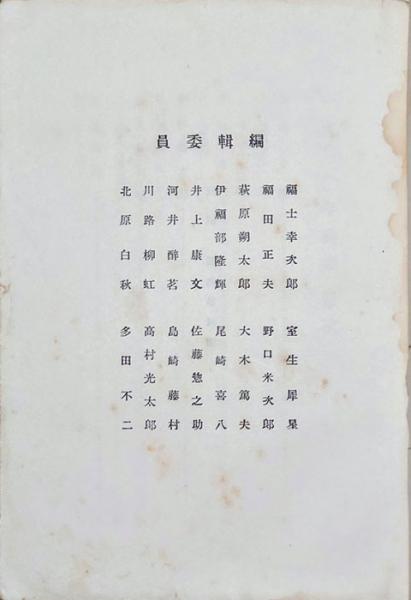 編輯委員
福士幸次郎 室生犀星
福田正夫 野口米次郎
萩原朔太郎 大木篤夫
伊福部隆輝 尾崎喜八
井上康文 佐藤惣之助
河井酔茗 島崎藤村
川路柳虹 高村光太郎
北原白秋 多田不二